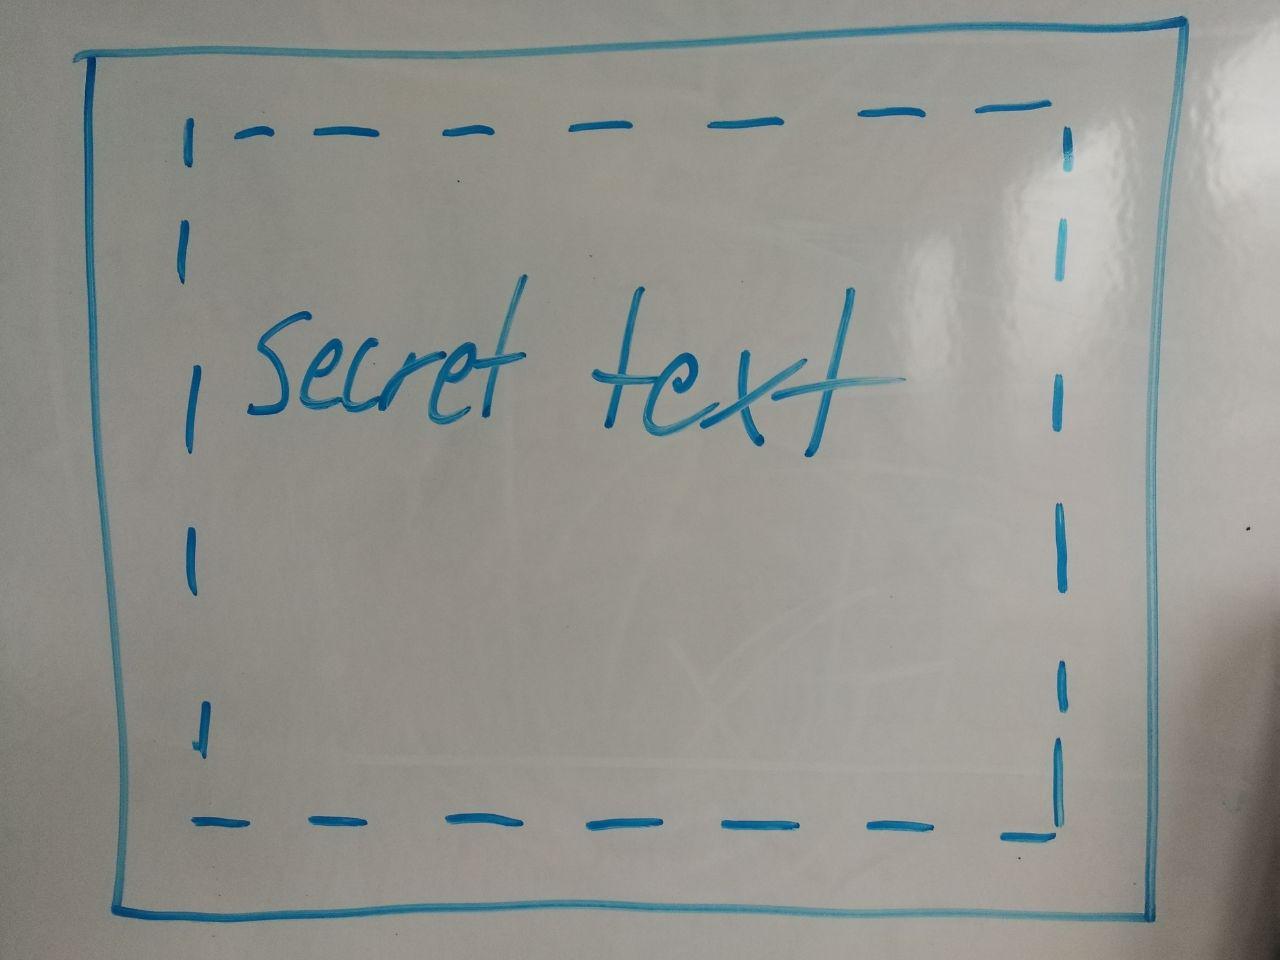 secret text